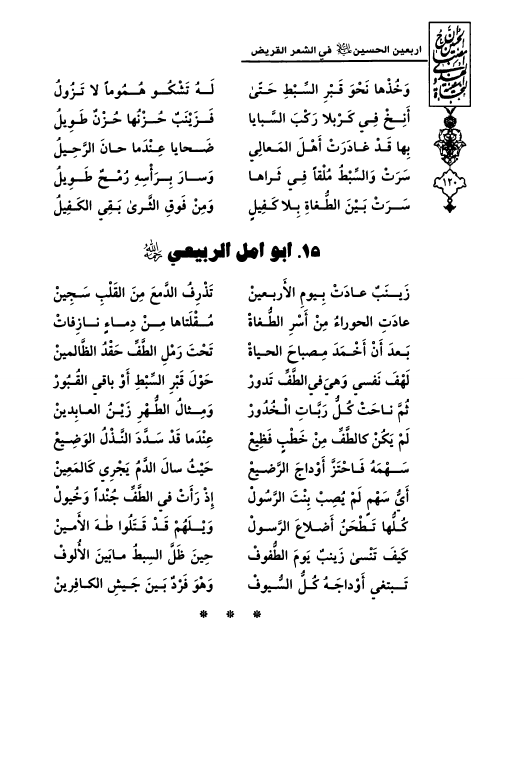 اربعين الحسين ﷺ في الشعر القريض
١٢٠
وَخُذْها نَحْوَ قَبْرِ السِّبْطِ حَتّىٰ لَهُ تَشْكُو هُمُوماً لا تَزُولُ
أَنِخْ فِي كَرْبلا رَكْبَ السَّبايا فَزَيْنَبُ حُزْنُها حُزْنٌ طَوِيلُ
بِها قَدْ غادَرَتْ أَهْلَ المَعالِي ضَحايا عِنْدَما حانَ الرَّحِيلُ
سَرَتْ وَالسِّبْطُ مُلْقاً فِي ثَراها وَسارَ بِرَأْسِهِ رُمْحٌ طَوِيلُ
سَرَتْ بَيْنَ الطُّغاةِ بِلا كَفِيلٍ وَمِنْ فَوقِ الثَّرىٰ بَقِي الكَفِيلُ
١٥. ابو امل الربيعي
زَيـنَبٌ عـادَتْ بِـيومِ الأَربـعينْ تَذْرِفُ الدَّمعَ مِنَ القَلْبِ سَجِينْ
عادَتِ الحوراءُ مِنْ أَسْرِ الطُّغاةْ مُقْلَتاها مِنْ دِماءٍ نازِفاتْ
بَعدَ أَنْ أَخْمَدَ مِصباحَ الحياةْ تَحْتَ رَمْلِ الطَّفِّ حَقْدُ الظَّالمينْ
لَهْفَ نَفسي وَهيَ في الطَّفِّ تَدورْ حَوْلَ قَبْرِ السِّبْطِ أَوْ باقي القُبُورْ
ثُمَّ ناحَتْ كُلُّ رَبَّاتِ الْخُدُورْ وَمِثالُ الطُّهْرِ زَيْنُ العابِدينْ
لَمْ يَكُنْ كالطَّفِّ مِنْ خَطْبٍ فَظِيعْ عِنْدَما قَدْ سَدَّدَ النَّذْلُ الوَضِيعْ
سَهْمَهُ فَاحْتَزَّ أَوْداجَ الرَّضيعْ حَيْثُ سالَ الدَّمُ يَجْرِي كَالمَعِينْ
أَيُّ سَهْمٍ لَمْ يُصِبْ بِنْتَ الرَّسُولْ إِذْ رَأَتْ في الطَّفِّ جُنْداً وَخُيولْ
كُلُّها تَطْحَنُ أَضْلاعَ الرَّسولْ وَيْلَهُمْ قَدْ قَتَلُوا طٰهَ الأَمينْ
كَيفَ تَنْسىٰ زَينبٌ يَومَ الطُّفوفْ حِينَ ظَلَّ السِبطُ مابَينَ الأُلُوفْ
تَبتغي أَوْداجَهُ كُلُّ السُّيوفْ وَهْوَ فَرْدٌ بَينَ جَيشِ الكافِرِينْ
* * *